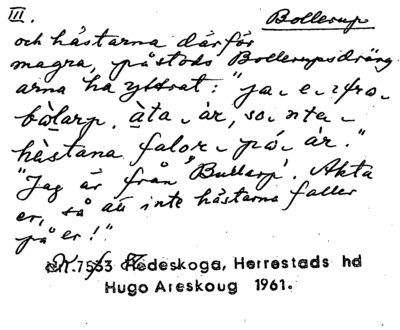 III. Bollerup
och hästarna därför
magra, påstods Bollerupsdräng
arna ha yttrat: "ja-e-ifrå-
bòlarp. àta-år, so-nta-
hèstana falor-på-år."
"Jag är från 'Bullarp'. Akta
er, så att inte hästarna faller
på er!"
7533 Hedeskoga, Herrestads hd
Hugo Areskoug 1961.